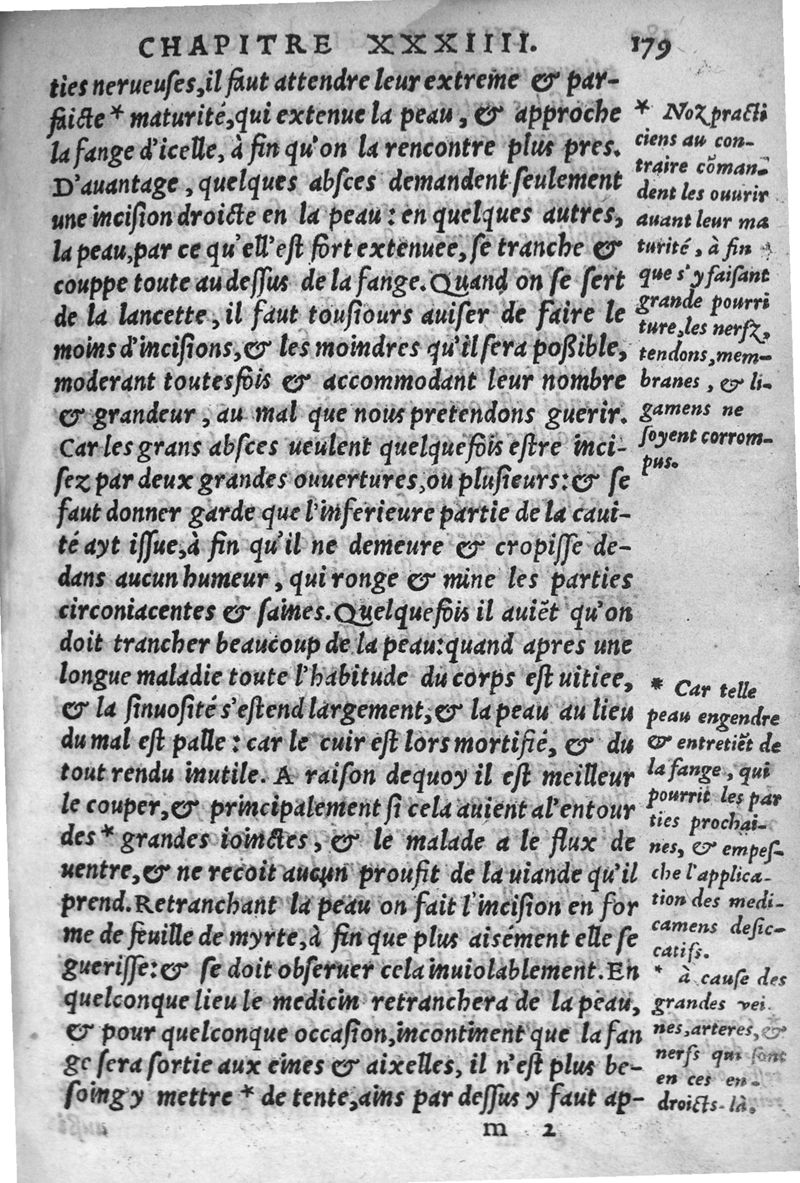 CHAPITRE XXXIIII. 179
ties nerueuses, il faut attendre leur extreme & par-
faicte * maturité, qui extenue la peau, & approche
la fange d'icelle, à fin qu'on la rencontre plus pres.
D'auantage, quelques absces demandent seulement
une incision droicte en la peau: en quelques autres,
la peau, par ce qu'ell'est fort extenuee, se tranche &
couppe toute au dessus de la fange. Quand on se sert
de la lancette, il faut tousiours auiser de faire le
moins d'incisions, & les moindres qu'il sera poßible,
moderant toutesfois & accommodant leur nombre
& grandeur, au mal que nous pretendons guerir.
Car les grans absces ueulent quelquefois estre inci-
sez par deux grandes ouuertures, ou plusieurs: & se
faut donner garde que l'inferieure partie de la caui-
té ayt issue, à fin qu'il ne demeure & cropisse de-
dans aucun humeur, qui ronge & mine les parties
circoniacentes & saines. Quelquefois il auiẽt qu'on
doit trancher beaucoup de la peau: quand apres une
longue maladie toute l'habitude du corps est uitiee,
& la sinuosité s'estend largement, & la peau au lieu
du mal est palle: car le cuir est lors mortifié, & du
tout rendu inutile. A raison dequoy il est meilleur
le couper, & principalement si cela auient al'entour
des * grandes ioinctes, & le malade a le flux de
uentre, & ne recoit aucun proufit de la uiande qu'il
prend. Retranchant la peau on fait l'incision en for
me de feuille de myrte, à fin que plus aisément elle se
guerisse: & se doit obseruer cela inuiolablement. En
quelconque lieu le medicin retranchera de la peau,
& pour quelconque occasion, incontinent que la fan
ge sera sortie aux eines & aixelles, il n'est plus be-
soing y mettre * de tente, ains par dessus y faut ap-
m 2
* Noz practi
ciens au con-
traire cõman-
dent les ouurir
auant leur ma
turité, à fin
que s'y faisant
grande pourri
ture, les nerfz,
tendons, mem-
branes, & li-
gamens ne
soyent corrom-
pus.
* Car telle
peau engendre
& entretiẽt de
la fange, qui
pourrit les par
ties prochai-
nes, & ẽmpes-
che l'applica-
tion des medi-
camens desic-
catifs.
* à cause des
grandes vei-
nes, arteres, &
nerfs qui sont
en ces en-
droicts-là.